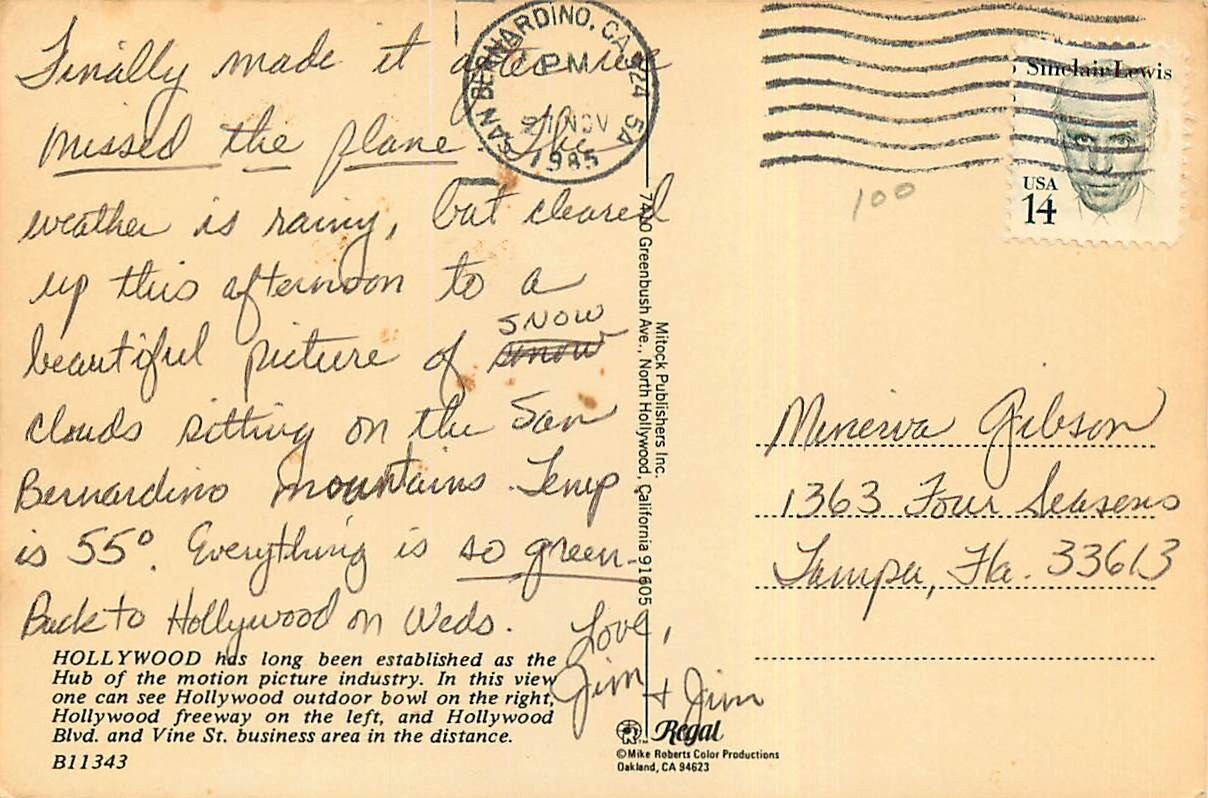 Finally made it after we
missed the plane. The
weather is rainy, but cleared
up this afternoon to a
beautiful picture of snow
snow
clouds sitting on the San
Bernardino mountains. Temp
is 55°. Everything is so green.
Back to Hollywood on Weds.
Love,
Jim + Jim
HOLLYWOOD has long been established as the
Hub of the motion picture industry. In this view
one can see Hollywood outdoor bowl on the right,
Hollywood freeway on the left, and Hollywood
Blvd. and Vine St. business area in the distance.
B11343
SAN BERNARDINO, CA 924 5A
PM
NOV
1985
Mitock Publishers Inc.
7400 Greenbush Ave., North Hollywood, California 91605
Regal
©Mike Roberts Color Productions
Oakland, CA 94623
Sinclair Lewis
USA
14
100
Minerva Gibson
1363 Four Seasons
Tampa, Fla. 33613